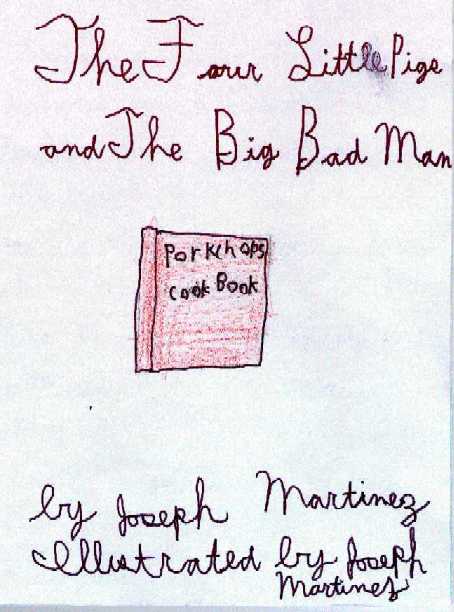 The Four Little Pigs
and The Big Bad Man
Porkchops
Cook Book
by Joseph Martinez
Illustrated by Joseph
Martinez